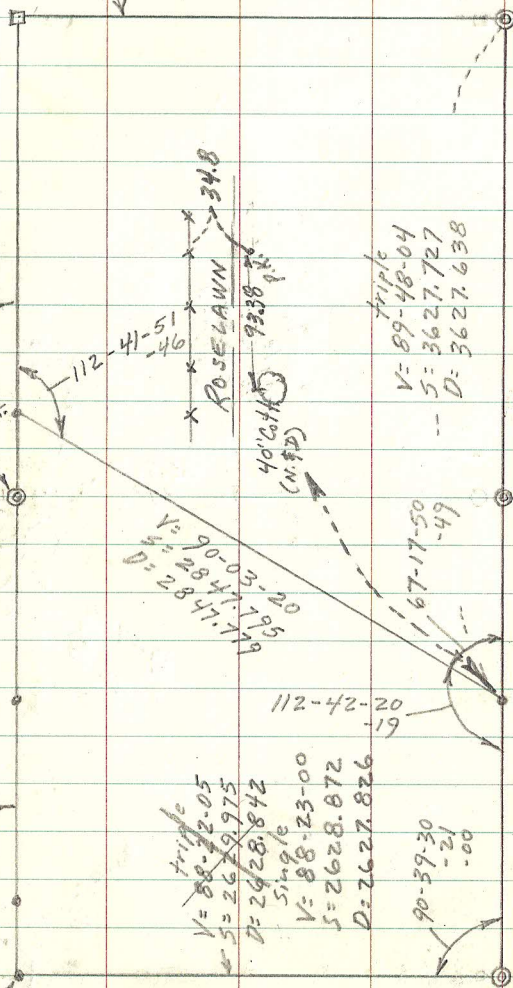 112-41-51
-46
34.8
ROSELAWN
93.38
40" Cott
(N.F.D)
triple
V= 89-48-04
S= 3627.727
D= 3627.638
V= 90-03-20
S= 2847.795
D= 2847.779
67-17-50
-49
112-42-20
-19
triple
V= 88-22-05
S= 2629.975
D= 2628.842
Single
V= 88-23-00
S= 2628.872
D= 2627.826
90-39-30
-21
-00